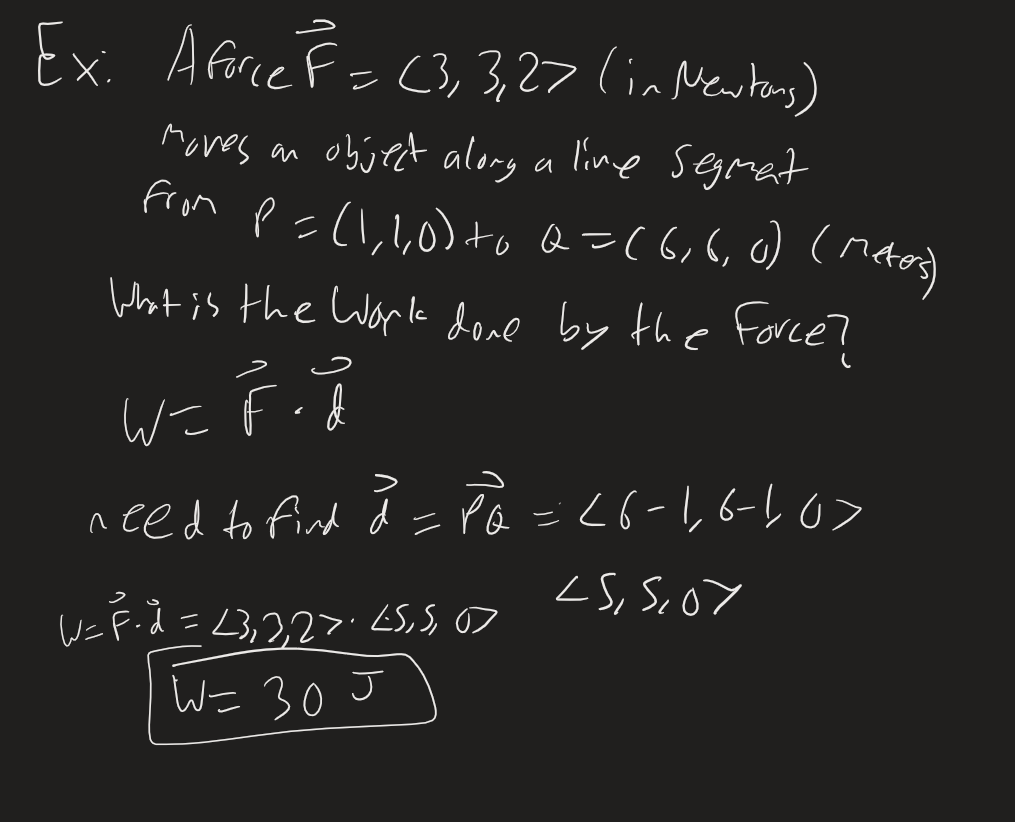 Ex: A force F⃗ = <3, 3, 2> (in Newtons)
moves an object along a line segment
from P = (1,1,0) to Q = (6, 6, 0) (meters)
What is the Work done by the Force?
W = F⃗ · d⃗
need to find d⃗ = PQ⃗ = <6-1, 6-1, 0>
<5, 5, 0>
W = F⃗ · d⃗ = <3,3,2> · <5,5,0>
W = 30 J